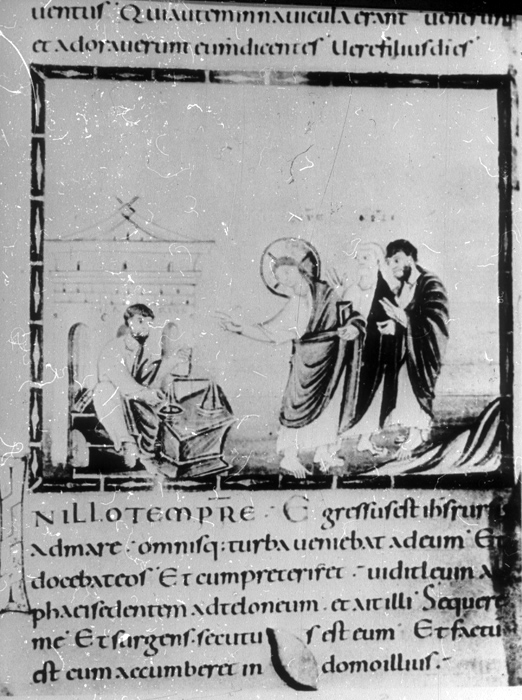 uentus Quiautem innauicula erant uenerunt
et adorauerunt eum dicentes Uere filius di es
NILLOTEMPRE. Egressus est ihs rursus
admare. omnisq; turba ueniebat adeum Et
docebat eos Et cum preteriret. uidit leuim al
phaei sedentem adteloneum. et ait illi Sequere
me Et surgens. secutus est eum Et factu
est cum accumberet in domo illius.